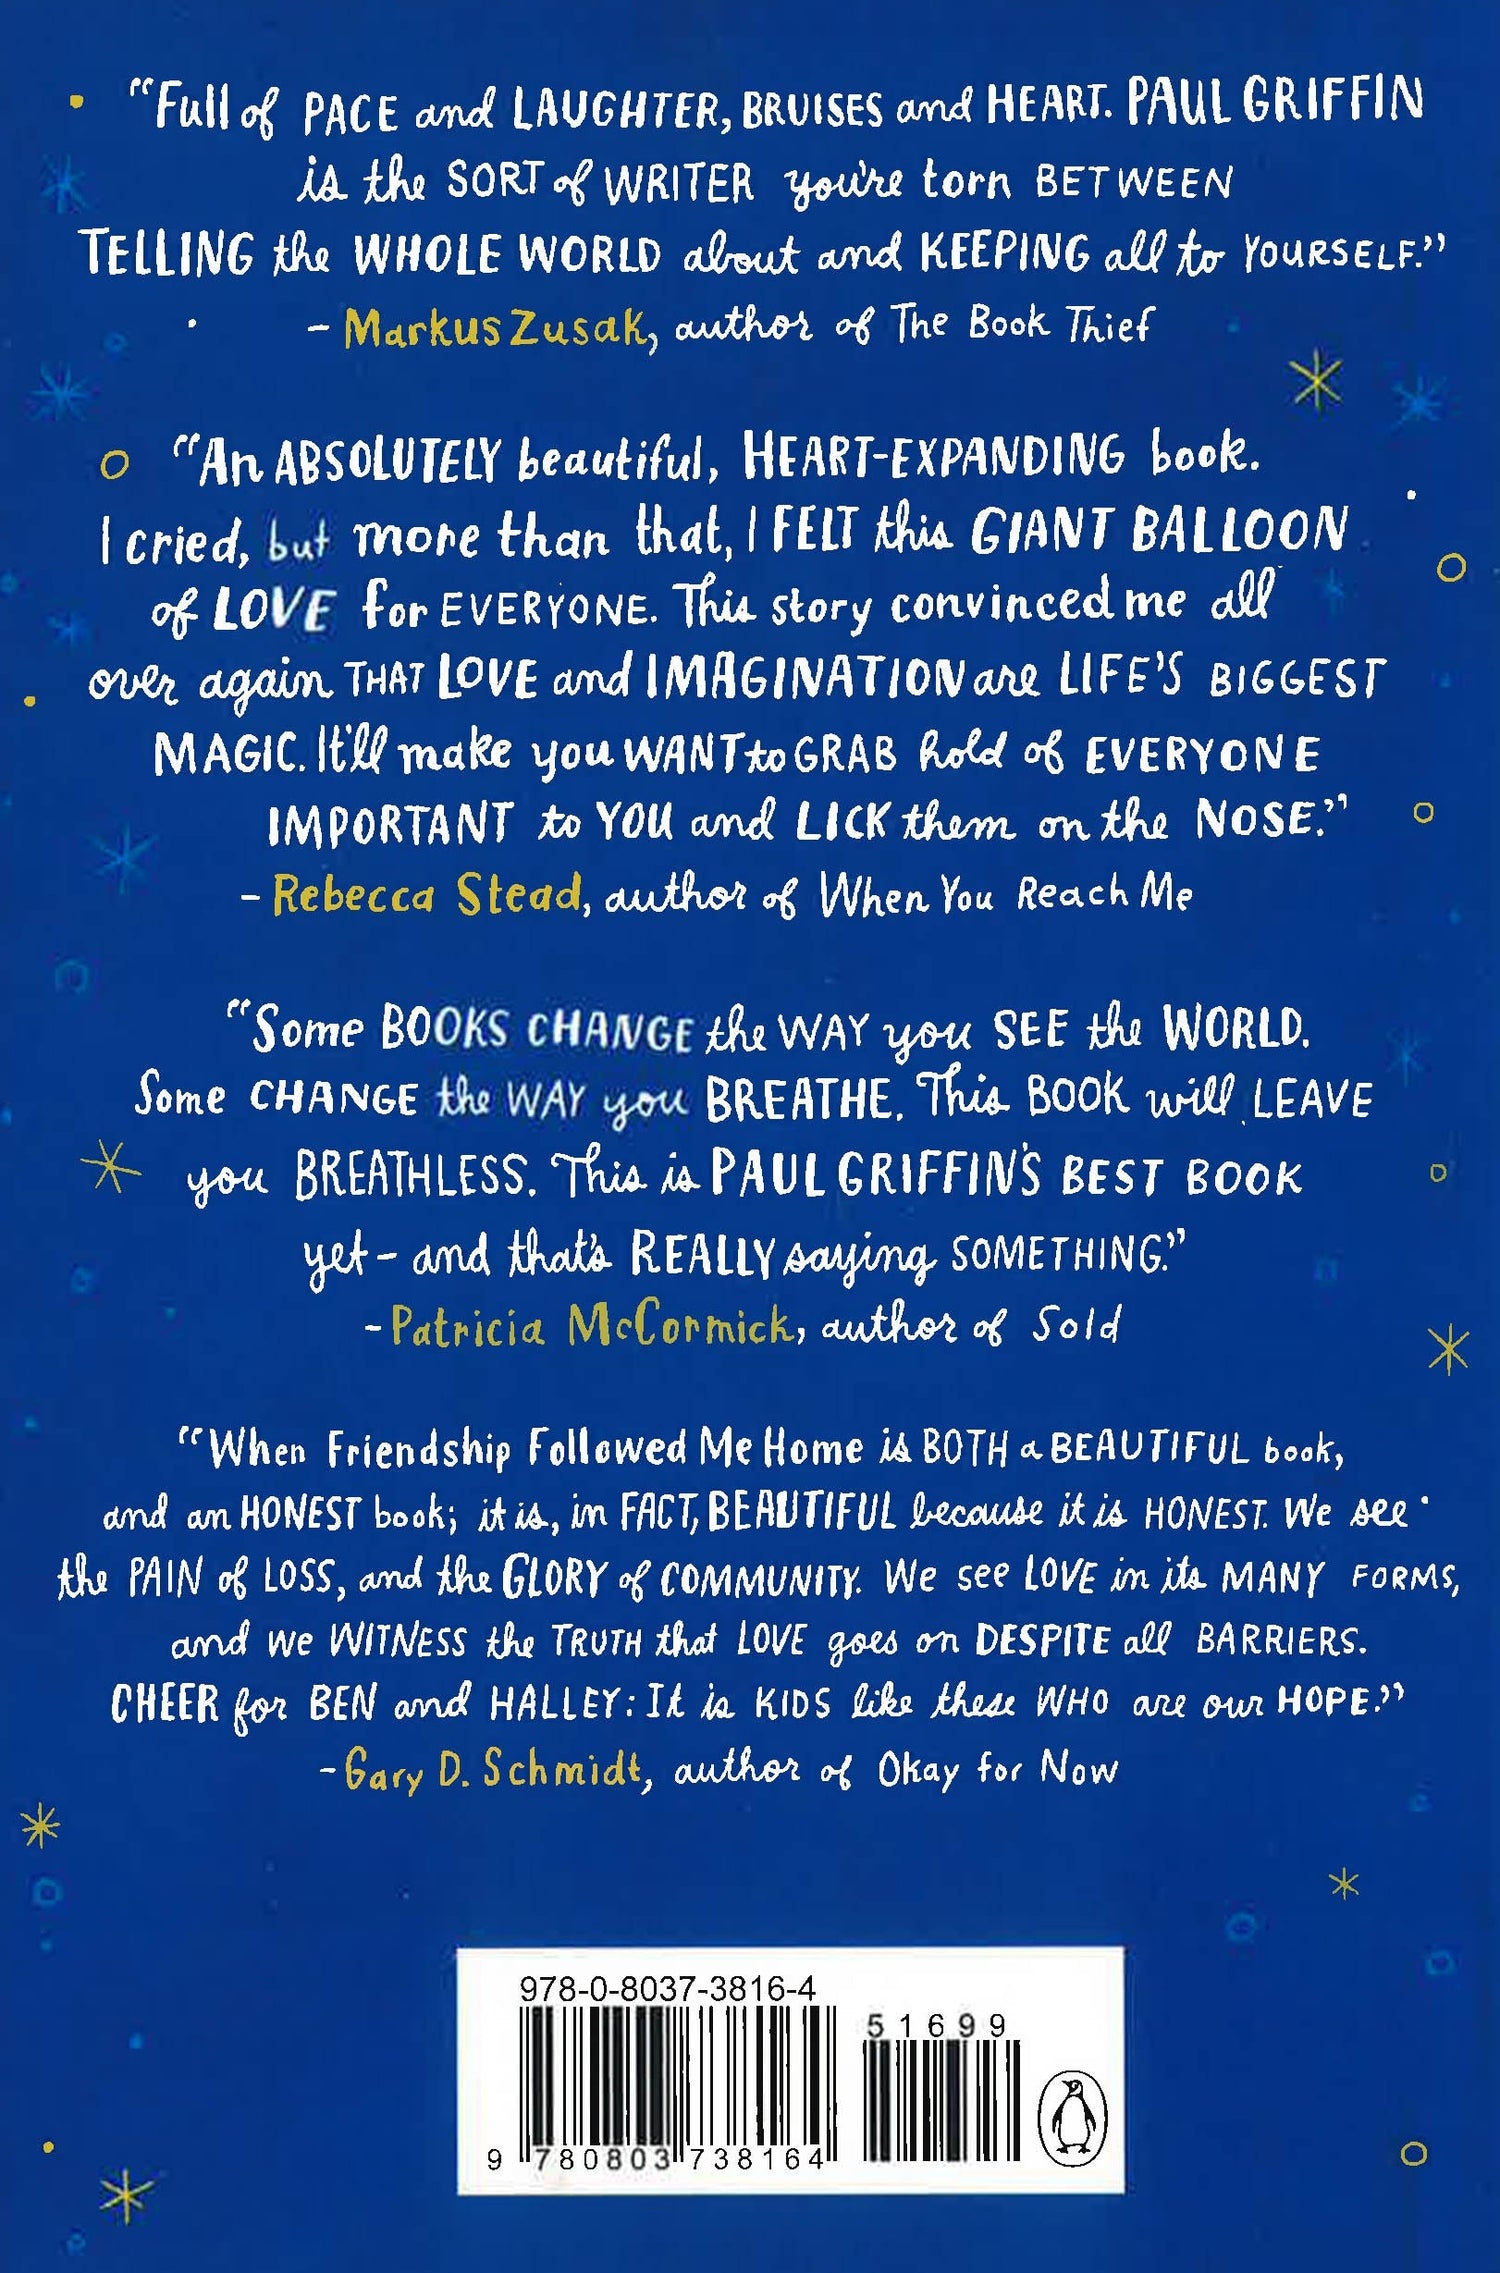 “Full of PACE and LAUGHTER, BRUISES and HEART. PAUL GRIFFIN
is the SORT of WRITER you're torn BETWEEN
TELLING the WHOLE WORLD about and KEEPING all to YOURSELF.”
– Markus Zusak, author of The Book Thief
“An ABSOLUTELY beautiful, HEART-EXPANDING book.
I cried, but more than that, I FELT this GIANT BALLOON
of LOVE for EVERYONE. This story convinced me all
over again THAT LOVE and IMAGINATION are LIFE'S BIGGEST
MAGIC. It'll make you WANT to GRAB hold of EVERYONE
IMPORTANT to YOU and LICK them on the NOSE.”
– Rebecca Stead, author of When You Reach Me
“Some BOOKS CHANGE the WAY you SEE the WORLD.
Some CHANGE the WAY you BREATHE. This BOOK will LEAVE
you BREATHLESS. This is PAUL GRIFFIN'S BEST BOOK
yet – and that's REALLY saying SOMETHING.”
– Patricia McCormick, author of Sold
“When Friendship Followed Me Home is BOTH a BEAUTIFUL book,
and an HONEST book; it is, in FACT, BEAUTIFUL because it is HONEST. We see
the PAIN of LOSS, and the GLORY of COMMUNITY. We see LOVE in its MANY FORMS,
and we WITNESS the TRUTH that LOVE goes on DESPITE all BARRIERS.
CHEER for BEN and HALLEY: It is KIDS like these WHO are our HOPE.”
– Gary D. Schmidt, author of Okay for Now
978-0-8037-3816-4
51699
9 780803 738164